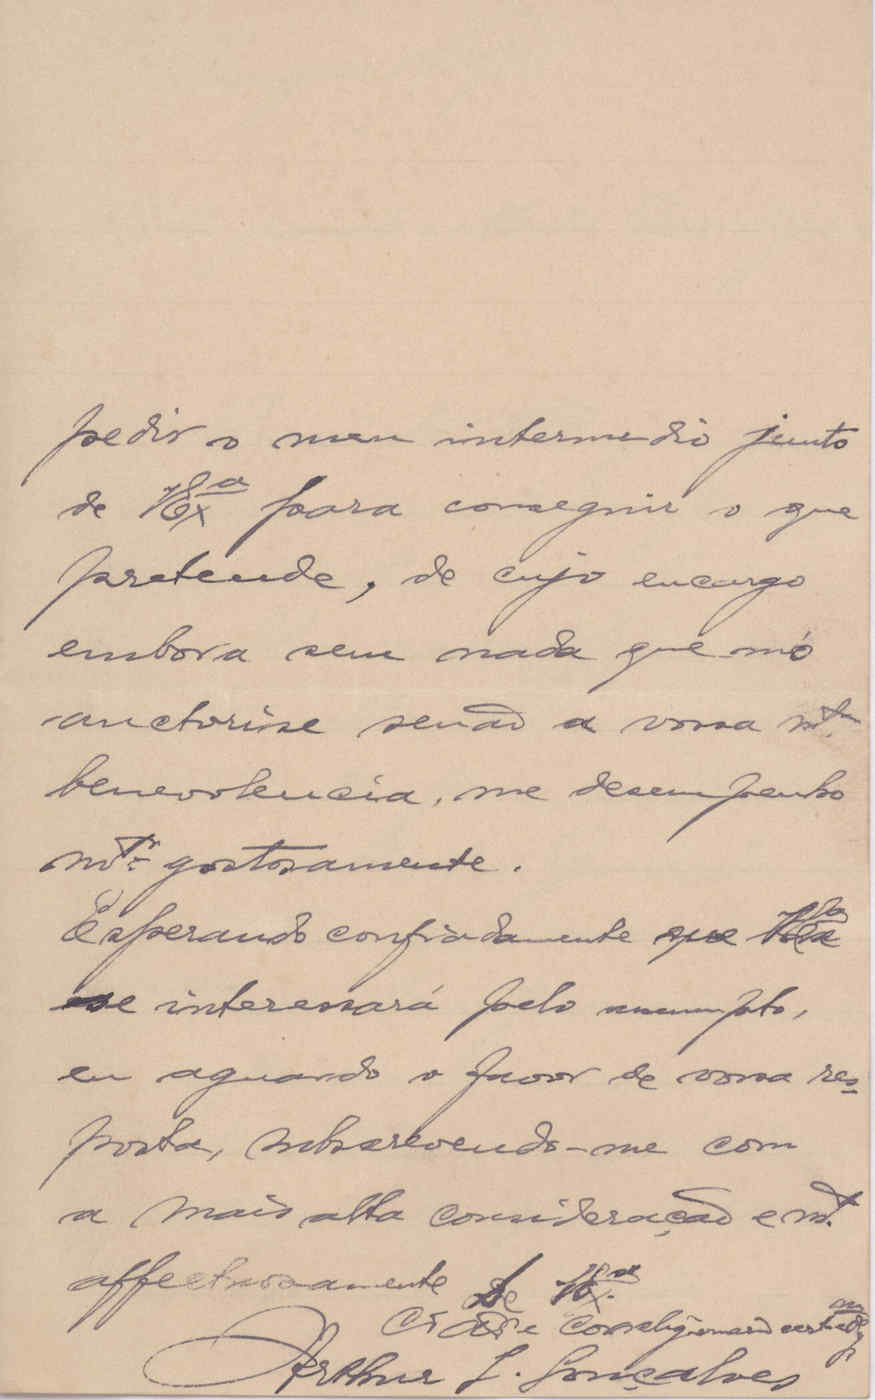 pedir o meu intermedio junto
de VExª para conseguir o que
pretende, de cujo encargo
embora sem nada que m'o
auctorise senão a vossa mtª
benevolencia, me desempenho
mtº gostosamente.
Esperando confiadamente que VExª
se interessará pelo assumpto,
eu aguardo o favor de vossa res-
posta, subscrevendo-me com
a mais alta consideração e mt.
affectuosamente De VExª
Crdº e correligionario
Arthur L. Gonçalves